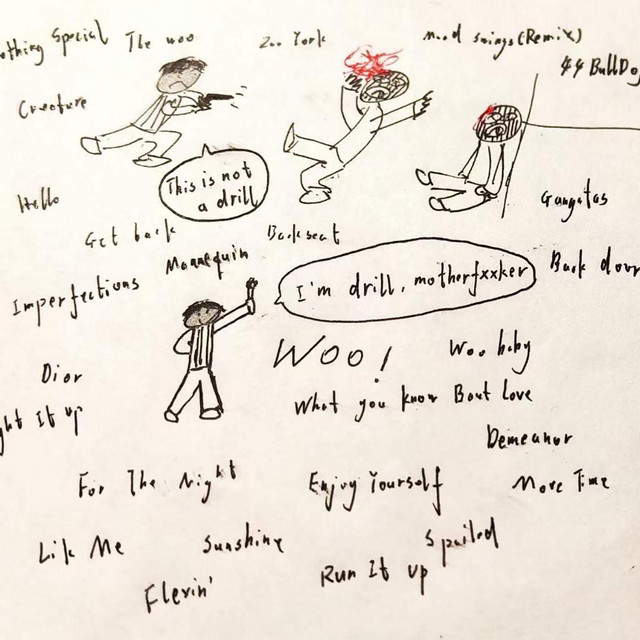 othing Special The woo Zoo York Mood swings (Remix)
44 BullDog
Creature
This is not
a drill
Hello
Gangstas
Get back
Backseat
Mannequin
Back door
Imperfections
I'm drill, motherfxxker
WOO!
Woo baby
Dior
What you know Bout Love
ght It up
Demeanor
For The Night
Enjoy Yourself
More Time
Lik Me
Sunshine
Spoiled
Flexin'
Run It up